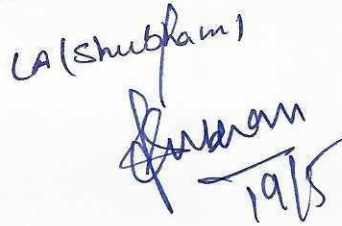 LA (Shubham)
Shubham
19/5